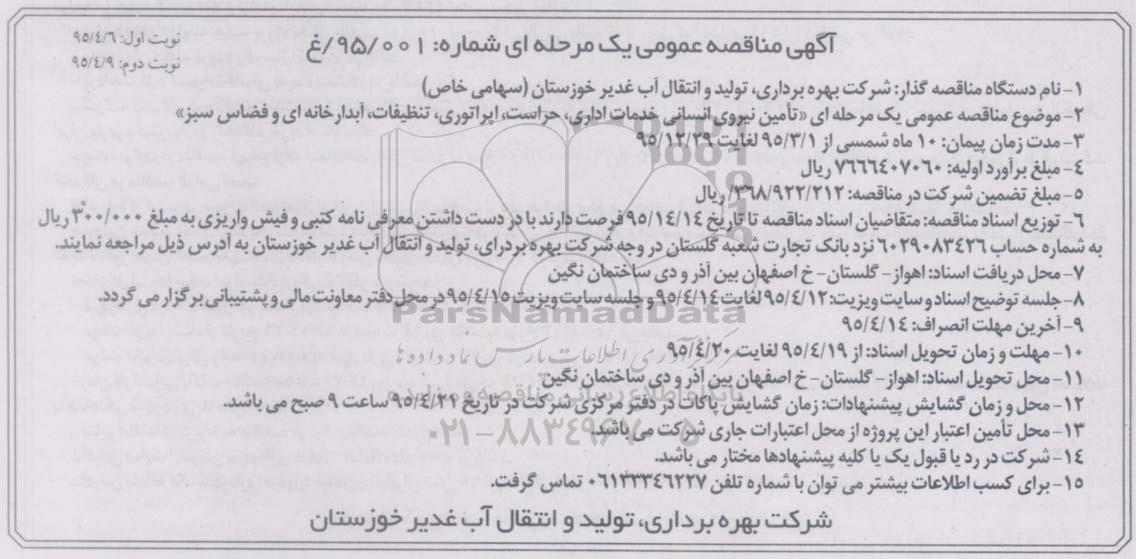 آگهی مناقصه عمومی یک مرحله ای شماره: ۹۵/۰۰۱/غ
نوبت اول: ۹۵/۴/۶
نوبت دوم: ۹۵/۴/۹
۱- نام دستگاه مناقصه گذار: شرکت بهره برداری، تولید و انتقال آب غدیر خوزستان (سهامی خاص)
۲- موضوع مناقصه عمومی یک مرحله ای «تأمین نیروی انسانی خدمات اداری، حراست، اپراتوری، تنظیفات، آبدارخانه ای و فضای سبز»
۳- مدت زمان پیمان: ۱۰ ماه شمسی از ۹۵/۳/۱ لغایت ۹۵/۱۲/۲۹
۴- مبلغ برآورد اولیه: ۷۶۶۶۴۰۷۰۶۰ ریال
۵- مبلغ تضمین شرکت در مناقصه: ۳۶۸/۹۲۲/۲۱۲/ ریال
۶- توزیع اسناد مناقصه: متقاضیان اسناد مناقصه تا تاریخ ۹۵/۱۴/۱۴ فرصت دارند با در دست داشتن معرفی نامه کتبی و فیش واریزی به مبلغ ۳۰۰/۰۰۰ ریال
به شماره حساب ۶۰۲۹۰۸۳۴۲۶ نزد بانک تجارت شعبه گلستان در وجه شرکت بهره بردرای، تولید و انتقال آب غدیر خوزستان به آدرس ذیل مراجعه نمایند.
۷- محل دریافت اسناد: اهواز- گلستان- خ اصفهان بین آذر و دی ساختمان نگین
۸- جلسه توضیح اسناد و سایت ویزیت: ۹۵/۴/۱۲ لغایت ۹۵/۴/۱۴ و جلسه سایت ویزیت ۹۵/۴/۱۵ در محل دفتر معاونت مالی و پشتیبانی برگزار می گردد.
۹- آخرین مهلت انصراف: ۹۵/۴/۱۴
۱۰- مهلت و زمان تحویل اسناد: از ۹۵/۴/۱۹ لغایت ۹۵/۴/۲۰
۱۱- محل تحویل اسناد: اهواز- گلستان- خ اصفهان بین آذر و دی ساختمان نگین
۱۲- محل و زمان گشایش پیشنهادات: زمان گشایش پاکات در دفتر مرکزی شرکت در تاریخ ۹۵/۴/۲۱ ساعت ۹ صبح می باشد.
۱۳- محل تأمین اعتبار این پروژه از محل اعتبارات جاری شرکت می باشد.
۱۴- شرکت در رد یا قبول یک یا کلیه پیشنهادها مختار می باشد.
۱۵- برای کسب اطلاعات بیشتر می توان با شماره تلفن ۰۶۱۳۳۳۴۶۲۲۷ تماس گرفت.
شرکت بهره برداری، تولید و انتقال آب غدیر خوزستان
ParsNamadData